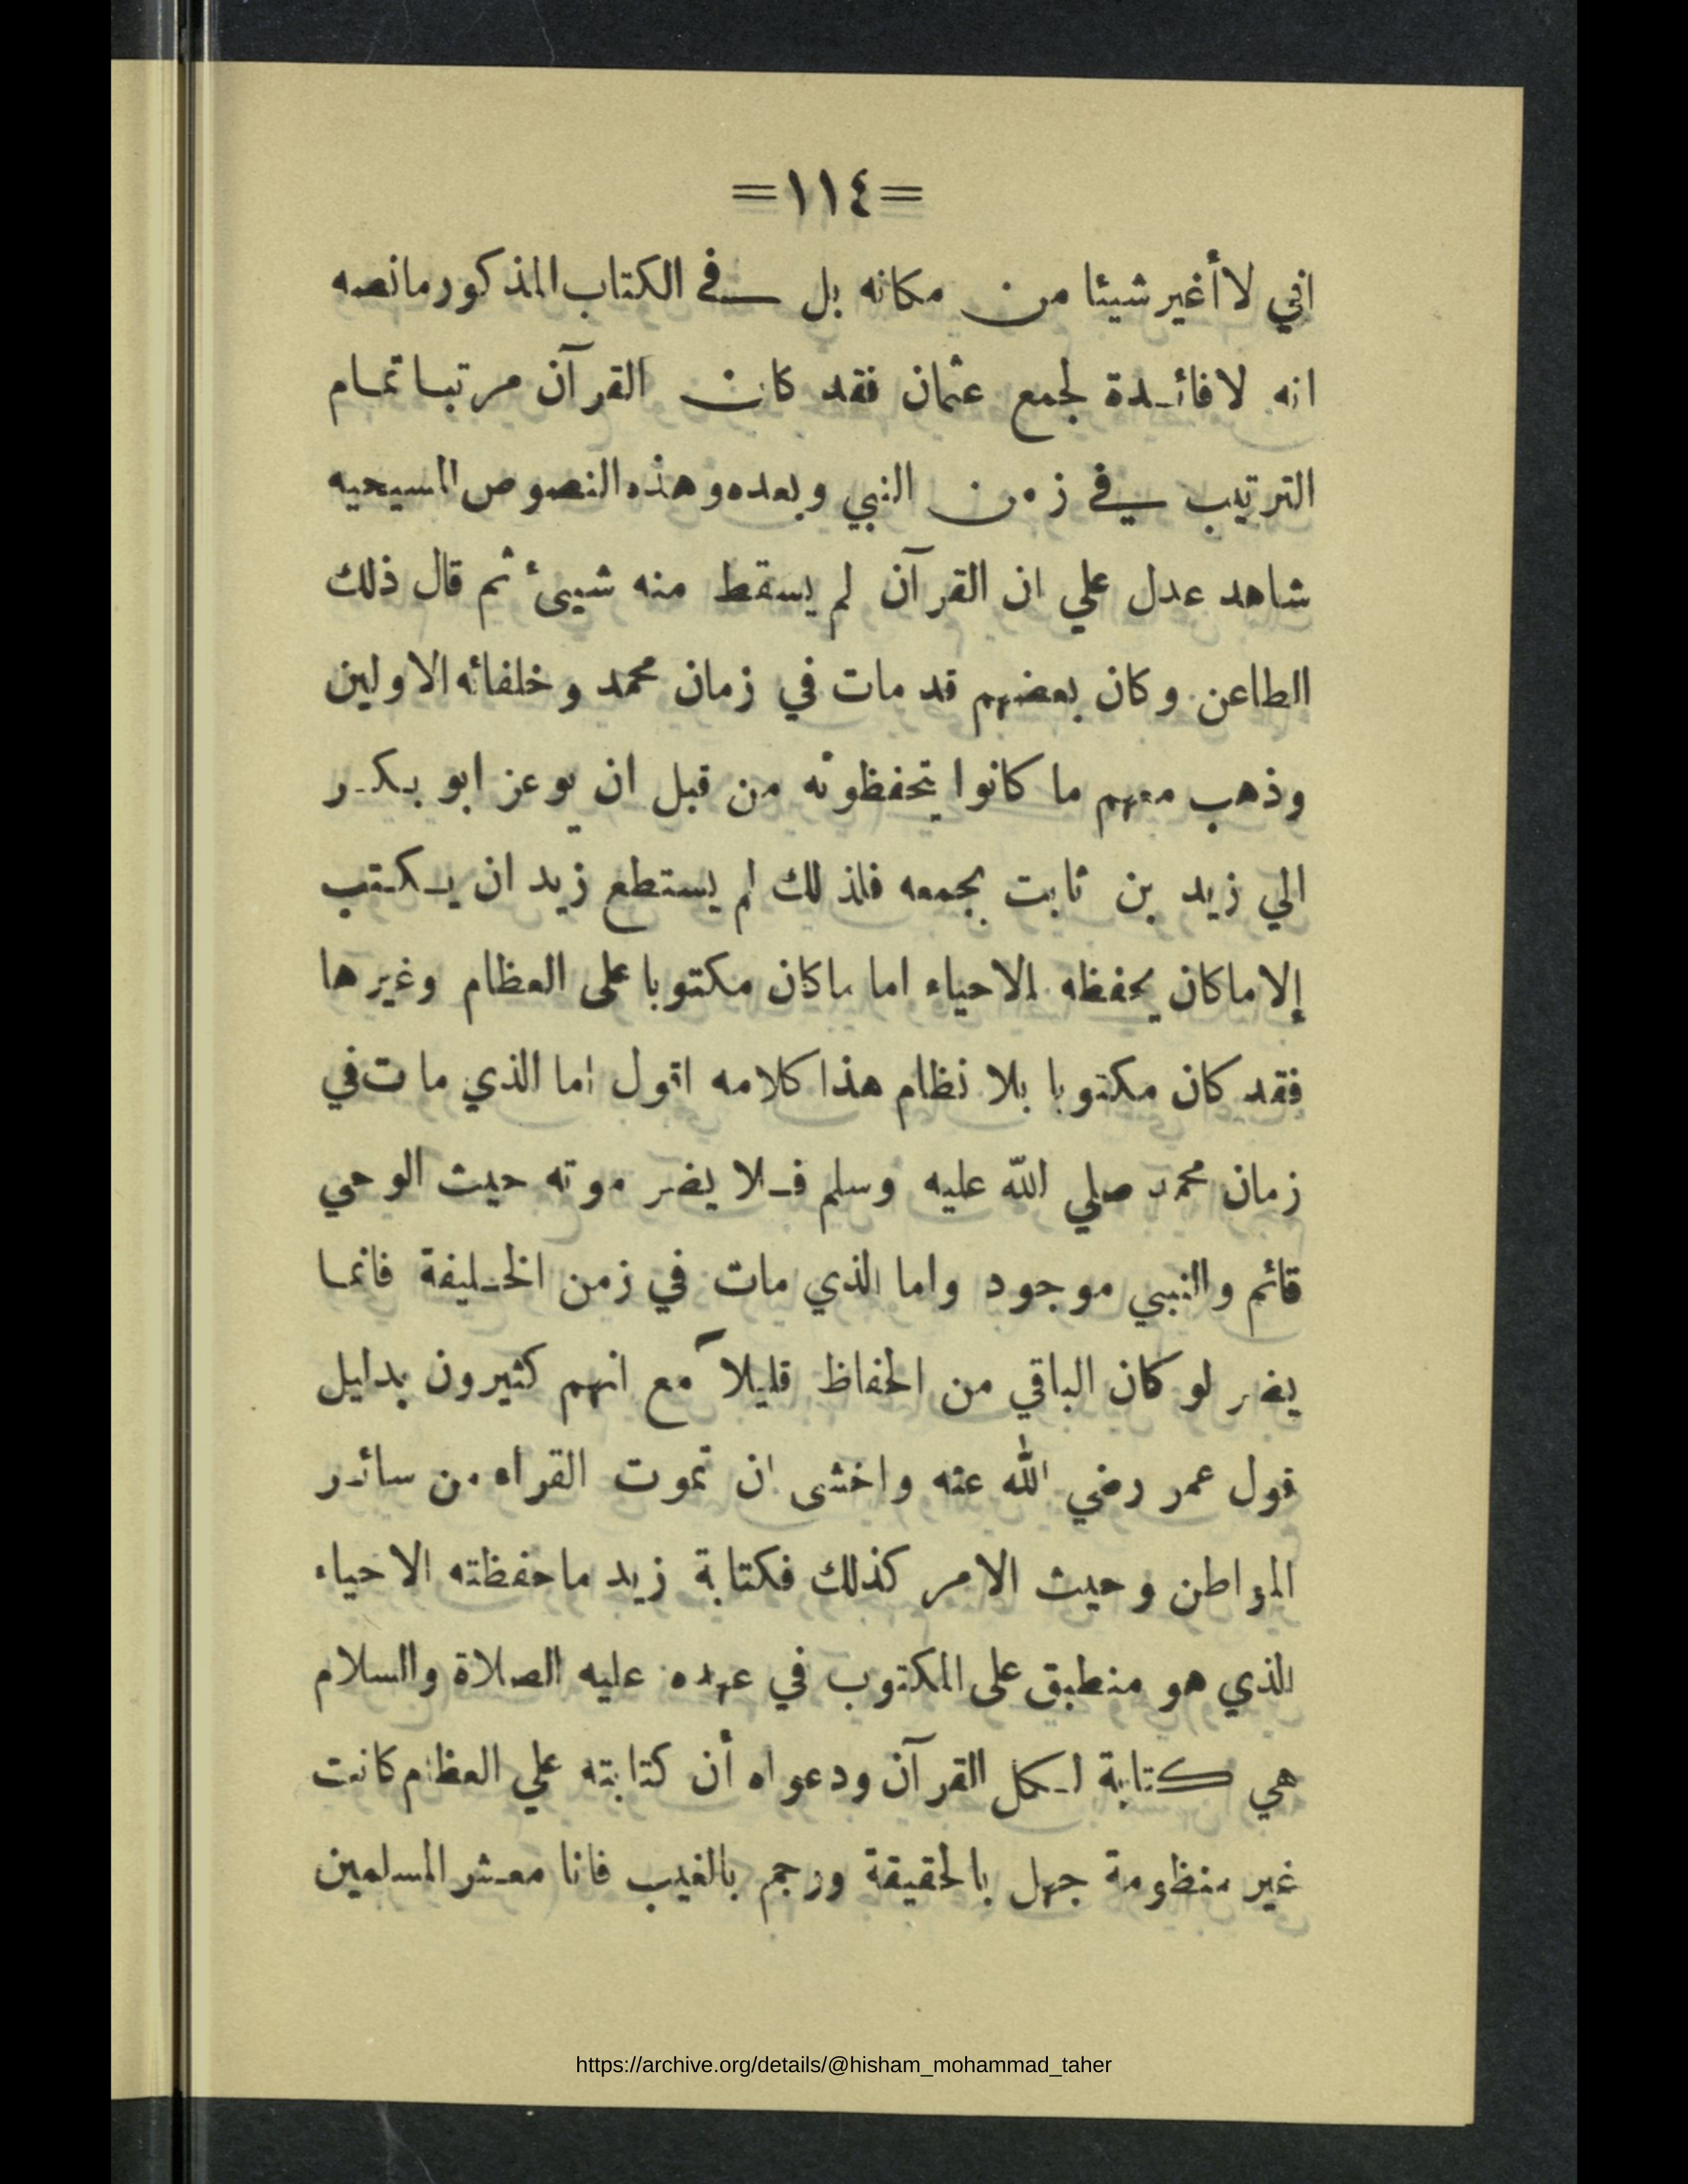 =١١٤=
اني لا أغير شيئا من مكانه بل في الكتاب المذكور مانصه
انه لا فائدة لجمع عثمان فقد كان القرآن مرتبا تمام
الترتيب في زمن النبي وبعده وهذه النصوص المسيحيه
شاهد عدل علي ان القرآن لم يسقط منه شيئ ثم قال ذلك
الطاعن وكان بعضهم قد مات في زمان محمد وخلفائه الاولين
وذهب معهم ما كانوا يحفظونه من قبل ان يوعز ابو بكر
الي زيد بن ثابت بجمعه فلذلك لم يستطع زيد ان يكتب
إلا ماكان يحفظه الاحياء اما ماكان مكتوبا على العظام وغيرها
فقد كان مكتوبا بلا نظام هذا كلامه اقول اما الذي مات في
زمان محمد صلي الله عليه وسلم فلا يضر موته حيث الوحي
قائم والنبي موجود واما الذي مات في زمن الخليفة فانما
يضر لو كان الباقي من الحفاظ قليلاً مع انهم كثيرون بدليل
قول عمر رضي الله عنه واخشى ان تموت القراء من سائر
المواطن وحيث الامر كذلك فكتابة زيد ماحفظته الاحياء
الذي هو منطبق على المكتوب في عهده عليه الصلاة والسلام
هي كتابة لكل القرآن ودعواه أن كتابته علي العظام كانت
غير منظومة جهل بالحقيقة ورجم بالغيب فانا معشر المسلمين
https://archive.org/details/@hisham_mohammad_taher